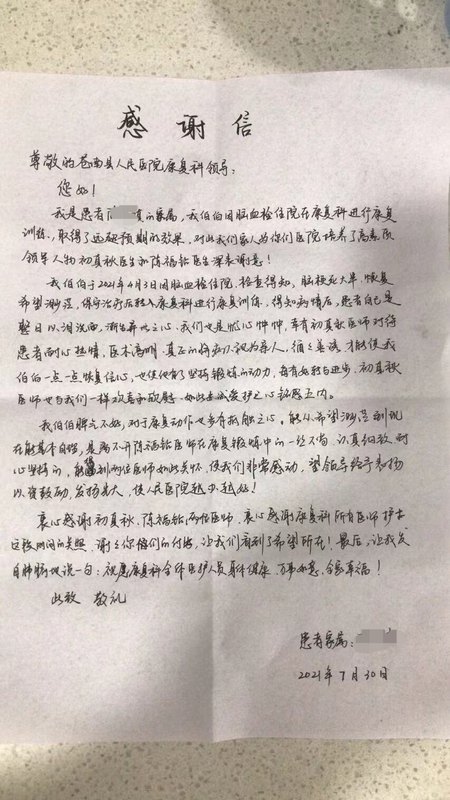 感谢信
尊敬的苍南县人民医院康复科领导：
您好！
我是患者陈 真的家属，我伯伯因脑血栓住院在康复科进行康复
训练，取得了远砸预期的效果，对此我们家人为你们医院培养了高素质
领导人物初真秋医生和陈福钻医生深表谢意！
我伯伯于2021年4月3日因脑血栓住院，检查得知，脑梗死大单，恢复
希望渺茫，保守治疗后转入康复科进行康复训练，得知病情后，患者自己是
整日以泪洗面，渐生弃世之心，我们也是忧心忡忡，幸有初真秋医师对待
患者耐心热情，医术高明，真正的将病人视为亲人，循循善诱，才能使我
伯伯一点一点恢复信心，也使他有了坚持锻炼的动力，每有好转与进步，初真秋
医师也与我们一样欢喜和欣慰，如此真诚爱护之心铭感五内。
我伯伯脾气不好，对于康复动作也多有抵触之心。能从希望渺茫到现
在能基本自理，是离不开陈福钻医师在康复锻炼中的一丝不苟、认真细致、耐
心坚持的，能得到两位医师如此关怀，使我们非常感动，望领导给予表扬
以资鼓励，发扬光大，使人民医院越办越好！
衷心感谢初真秋、陈福钻两位医师，衷心感谢康复科所有医师护士
这段时间的关照，谢谢你们的付出，让我们看到了希望所在！最后，让我发
自肺腑地说一句：祝愿康复科全体医护人员身体健康、万事如意、全家幸福！
此致 敬礼
患者家属：
2021年7月30日